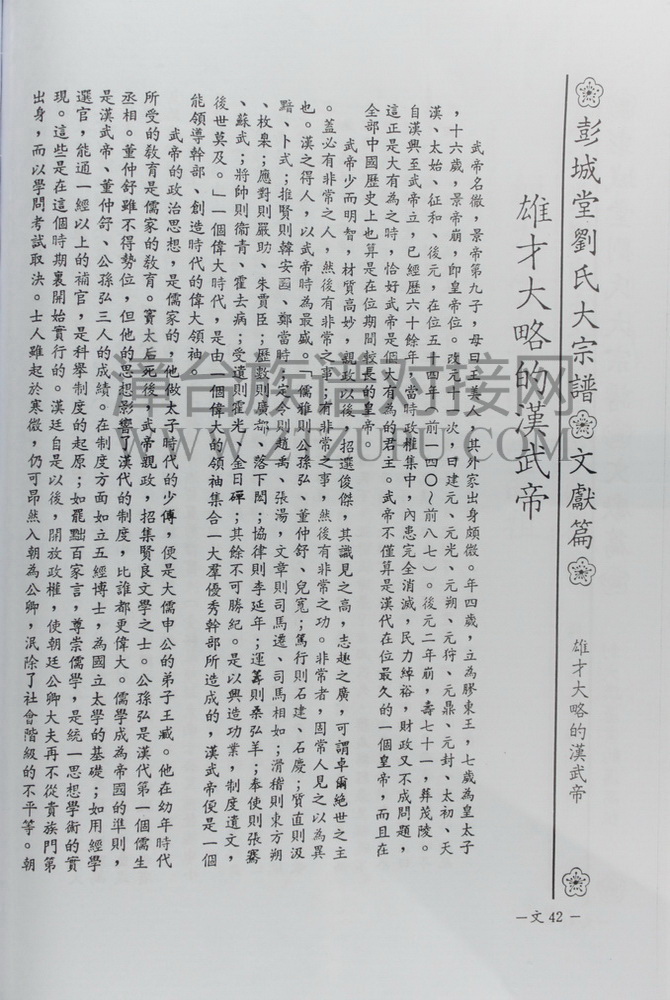 彭城堂劉氏大宗譜 文獻篇
雄才大略的漢武帝
—文 42 —
雄才大略的漢武帝
武帝名徹，景帝第九子，母曰王美人，其外家出身頗微。年四歲，立為膠東王，七歲為皇太子
，十六歲，景帝崩，即皇帝位。改元十一次，曰建元、元光、元朔、元狩、元鼎、元封、太初、天
漢、太始、征和、後元，在位五十四年（前一四〇～前八七）。後元二年崩，壽七十一，葬茂陵。
自漢興至武帝立，已經歷六十餘年，當時政權集中，內患完全消滅，民力綽裕，財政又不成問題，
這正是大有為之時，恰好武帝是個大有為的君主。武帝不僅算是漢代在位最久的一個皇帝，而且在
全部中國歷史上也算是在位期間較長的皇帝。
武帝少而明智，材質高妙，親政以後，招選俊傑，其識見之高，志趣之廣，可謂卓爾絕世之主
。蓋必有非常之人，然後有非常之事；有非常之事，然後有非常之功。非常者，固常人見之以為異
也。漢之得人，以武帝時為最盛。「儒雅則公孫弘、董仲舒、兒寬；篤行則石建、石慶；質直則汲
黯、卜式；推賢則韓安國、鄭當時；定令則趙禹、張湯，文章則司馬遷、司馬相如；滑稽則東方朔
、枚臯；應對則嚴助、朱賈臣；歷數則唐都、落下閎；協律則李延年；運籌則桑弘羊；奉使則張騫
、蘇武；將帥則衞青、霍去病；受遺則霍光、金日磾；其餘不可勝紀。是以興造功業，制度遺文，
後世莫及。」一個偉大時代，是由一個偉大的領袖集合一大羣優秀幹部所造成的，漢武帝便是一個
能領導幹部、創造時代的偉大領袖。
武帝的政治思想，是儒家的，他做太子時代的少傅，便是大儒申公的弟子王臧。他在幼年時代
所受的敎育是儒家的敎育。竇太后死後，武帝親政，招集賢良文學之士。公孫弘是漢代第一個儒生
丞相。董仲舒雖不得勢位，但他的思想影響了漢代的制度，比誰都更偉大。儒學成為帝國的準則，
是漢武帝、董仲舒、公孫弘三人的成績。在制度方面如立五經博士，為國立太學的基礎；如用經學
選官，能通一經以上的補官，是科學制度的起原；如罷黜百家言，尊崇儒學，是統一思想學術的實
現。這些是在這個時期裏開始實行的。漢廷自是以後，開放政權，使朝廷公卿大夫再不從貴族門第
出身，而以學問考試取決。士人雖起於寒微，仍可昂然入朝為公卿，泯除了社會階級的不平等。朝
漳台族谱对接网
WWW.ZTZUPU.COM